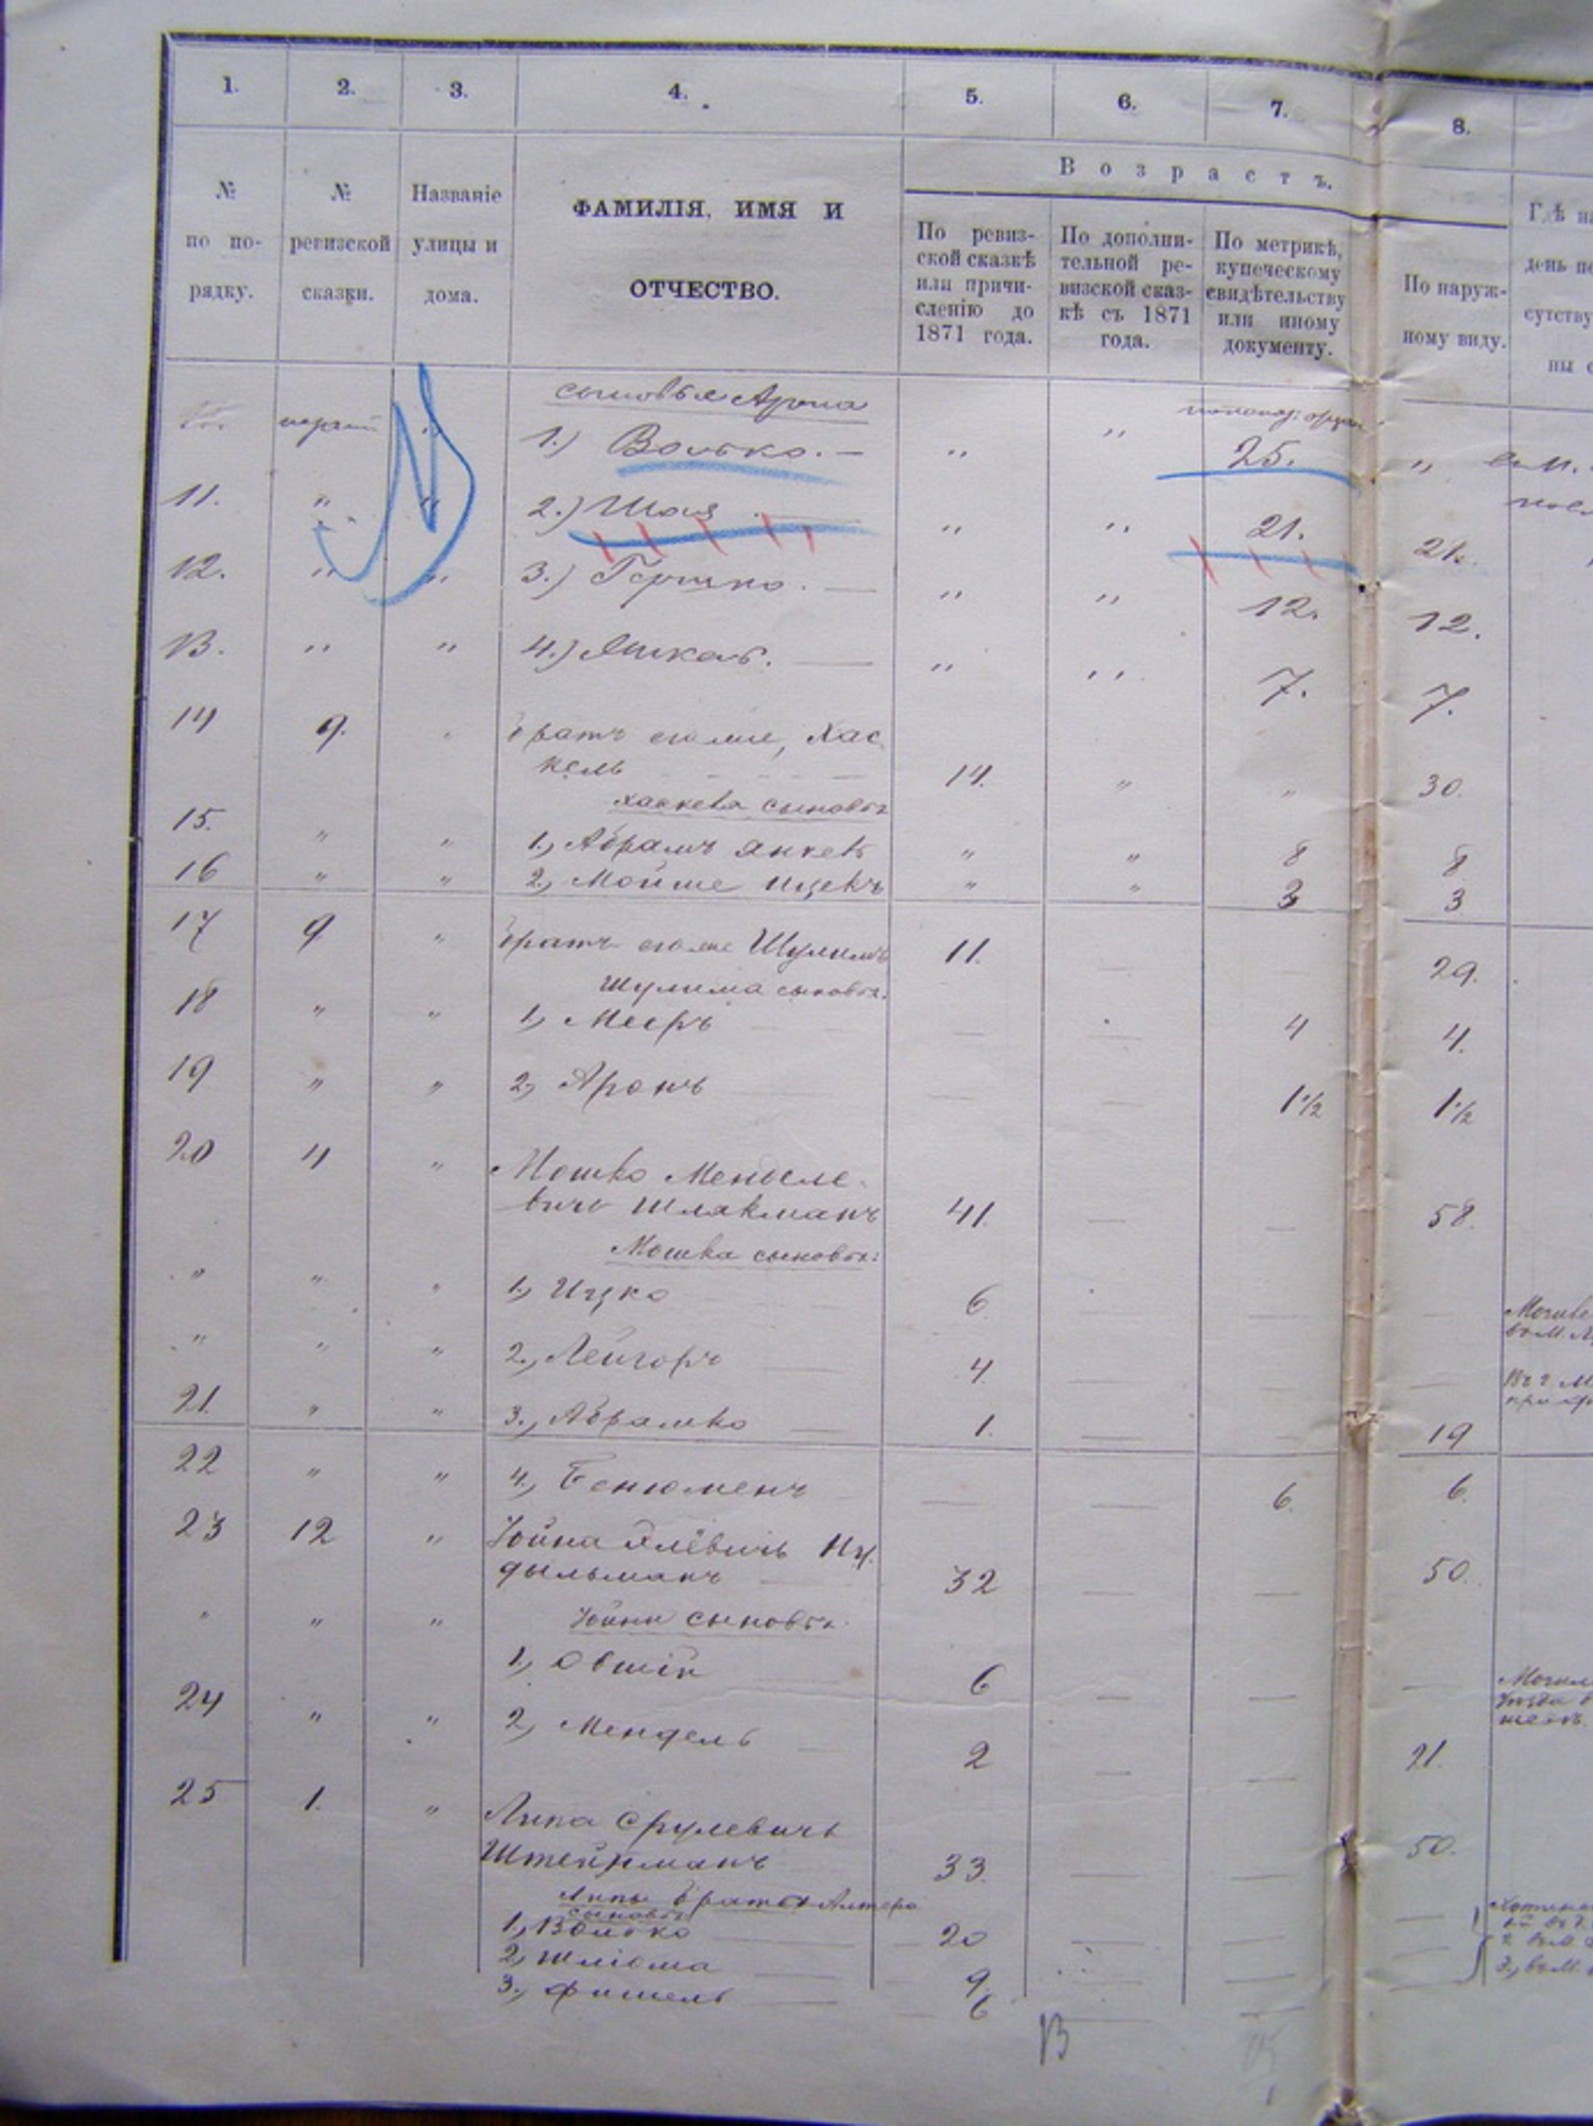 1. 2. 3. 4. 5. 6. 7. 8.
Возрастъ.
№ по порядку.
№ ревизской сказки.
Названіе улицы и дома.
ФАМИЛІЯ, ИМЯ И
ОТЧЕСТВО.
По ревиз-
ской сказкѣ
или причи-
сленію до
1871 года.
По дополни-
тельной ре-
визской сказ-
кѣ съ 1871
года.
По метрикѣ,
купеческому
свидѣтельству
или иному
документу.
По наруж-
ному виду.
Гдѣ на
день пе
сутству
ны с
сыновья Арона
1.) Волько. — " " 25. "
11. " " 2.) Шая " " 21. 21.
12. " " 3.) Гершко. — " " 12. 12.
13. " " 4.) Янкель. — " " 7. 7.
14 9. братъ его же, Хас
кель 14. " " 30.
Хаскеля сыновья
15. " " 1., Абрамъ Янкель " " 8 8
16 " " 2., Мойше Ицекъ " " 3 3
17 9 " братъ его же Шулимъ 11. 29.
Шулима сыновья.
18 " " 1, Меиръ 4 4.
19 " " 2, Аронъ 1½ 1½
20 4 " Мошко Менделе-
вичъ Шлякманъ 41. 58.
Мошка сыновья:
" " " 1., Ицко 6
" " " 2., Лейзоръ 4
21. " " 3., Абрамко 1. 19
22 " " 4, Бенюменъ 6. 6.
23 12 " Іойна Элевичъ Ну
дыльманъ 32 50.
" " " Іойни сыновья.
1, Овшій 6
24 " " 2, Мендель 2 21.
25 1. " Липа Срулевичъ
Штейнманъ 33. 50.
Липы братья Алтера
сыновья
1., Волько 20
2, Шліома 9
3., Фишель 6
13